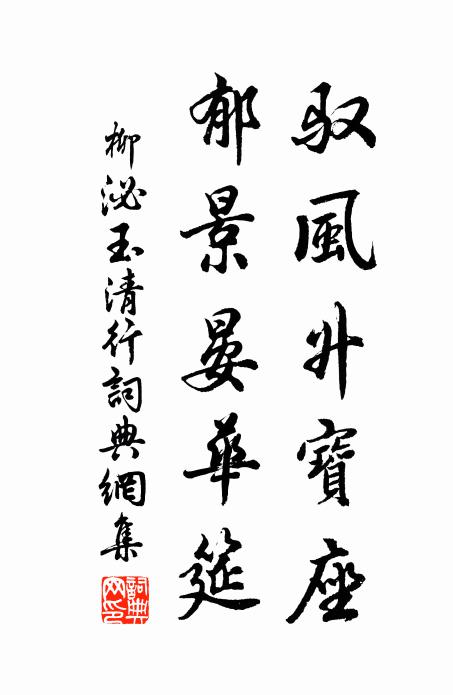 馭風升寶座
郁景晏華筵
柳泌玉清行詞典網集
詞典網印